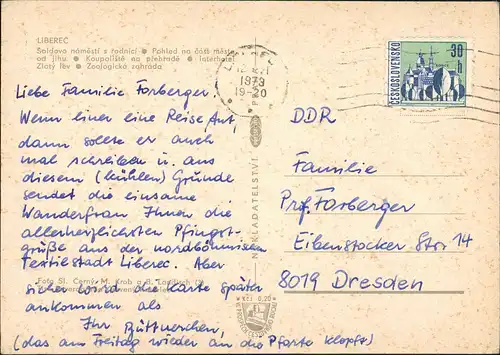 LIBEREC
Soldovo náměstí s radnicí ● Pohled na část města
od jihu ● Koupaliště na přehradě ● Interhotel
Zlatý lev ● Zoologická zahrada
1973
19-20
30
h
ČESKOSLOVENSKO
Liebe Familie Forberger.
Wenn einer eine Reise tut,
dann sollte er auch
mal schreiben u. aus
diesem (kühlen) Grunde
sendet die einsame
Wanderfrau Ihnen die
allerherzlichsten Pfingst-
grüße aus der nordböhmischen
Textilstadt Liberec. Aber
sicher wird die Karte später
ankommen als
Ihr Büttnerchen,
(das am Freitag wieder an die Pforte klopft)
DDR
Familie
Prof. Forberger
Eibenstocker Str 14
8019 Dresden
NAKLADATELSTVÍ
Foto Sl. Černý, M. Krob a
Kčs 0,20